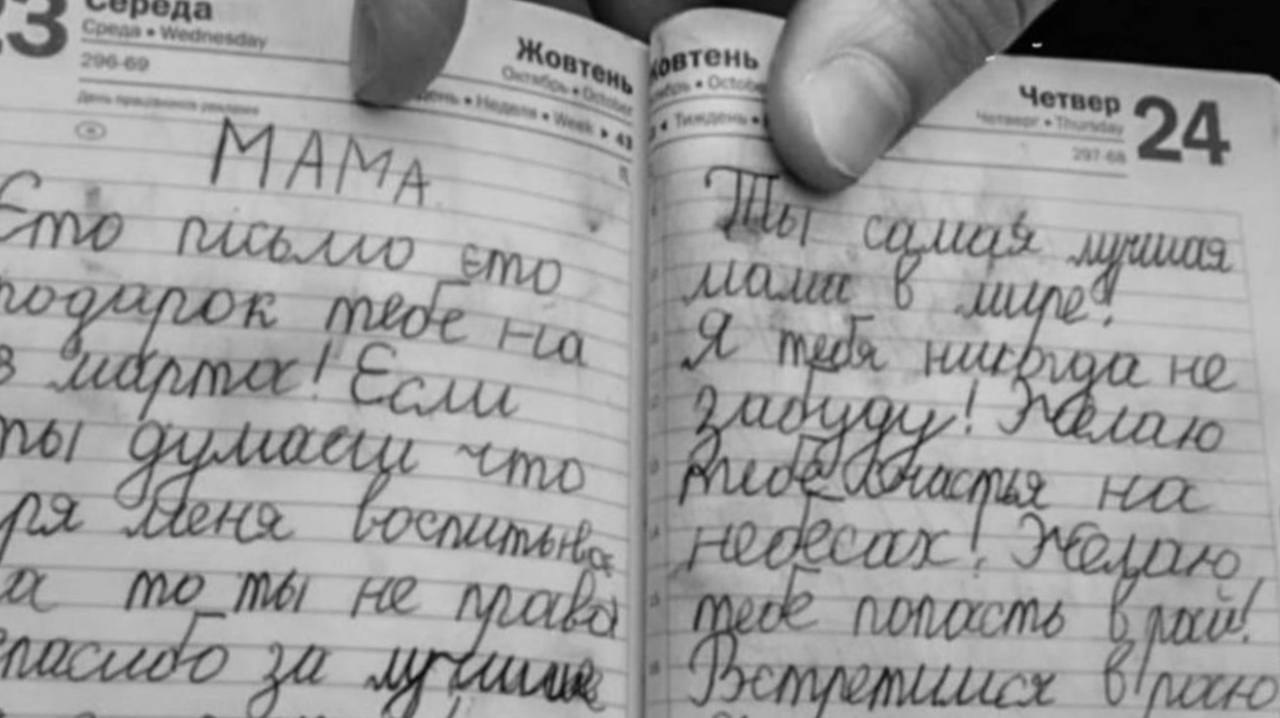 23
Середа
Среда • Wednesday
296-69
Жовтень
Октябрь • October
• Неделя • Week ▸ 43
День працівника реклами
МАМА
Єто пісьмо єто
подарок тебе на
марта! Єсли
ты думаєш что
меня воспитыва
то ты не права
спасибо за лучшие
Жовтень
• October
• Тиждень •
Четвер
24
Четверг • Thursday
297-68
Ты самая лучшая
мама в мире!
Я тебя никогда не
забуду! Желаю
тебе счастья на
небесах! Желаю
тебе попасть в рай!
Встретимся в раю